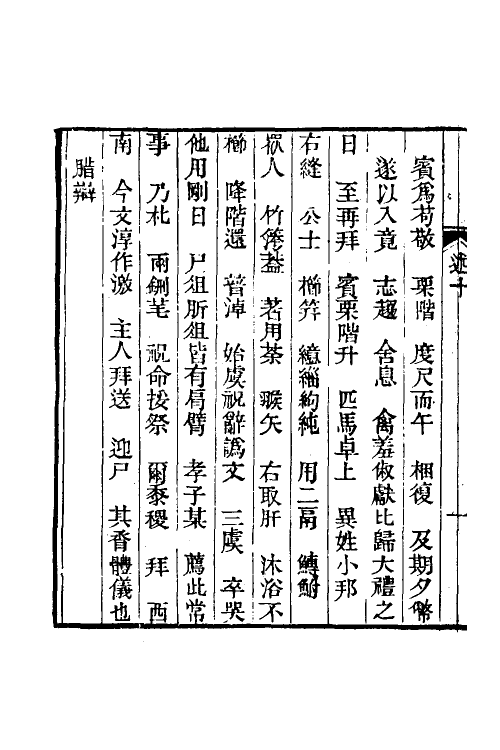 賓爲苟敬　栗階　度尺而午　梱復　及期夕幣
遂以入竟　志趨　舍息　禽羞俶獻比歸大禮之
日　至再拜　賓栗階升　匹馬卓上　異姓小邦
右縫　公士　櫛笄　繶緇絇純　用二鬲　鱄鮒
掀人　竹簜蓋　若用荼　翭矢　右取肝　沐浴不
櫛　降階還　普淖　始虞祝辭譌文　三虞　卒哭
他用剛日　尸俎肵俎皆有肩臂　孝子某　薦此常
事　乃朼　兩鉶芼　祝命挼祭　爾黍稷　拜　西
南　今文淳作激　主人拜送　迎尸　其香體儀也
腊辯